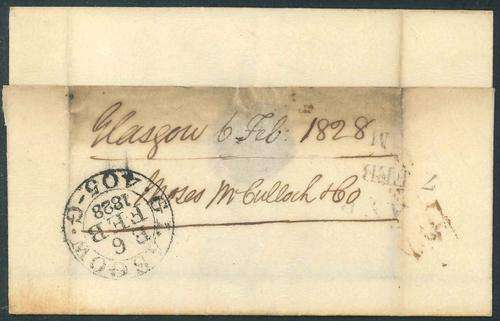 Glasgow 6 Feb: 1828
Moses McCulloch & Co
GLASGOW
6
FEB
1828
405-G